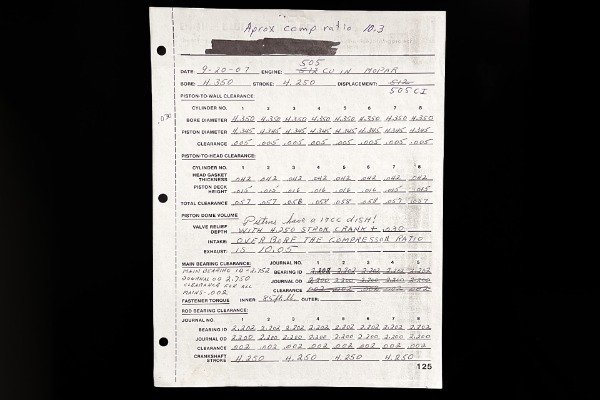 Aprox comp. ratio 10.3
505
DATE: 9-20-07 ENGINE: 512 CU IN MOPAR
BORE: 4.350 STROKE: 4.250 DISPLACEMENT: 512
505 CI
PISTON-TO-WALL CLEARANCE:
.030
CYLINDER NO. 1 2 3 4 5 6 7 8
BORE DIAMETER 4.350 4.350 4.350 4.350 4.350 4.350 4.350 4.350
PISTON DIAMETER 4.345 4.345 4.345 4.345 4.345 4.345 4.345 4.345
CLEARANCE .005 .005 .005 .005 .005 .005 .005 .005
PISTON-TO-HEAD CLEARANCE:
CYLINDER NO. 1 2 3 4 5 6 7 8
HEAD GASKET
THICKNESS .042 .042 .042 .042 .042 .042 .042 .042
PISTON DECK
HEIGHT .015 .015 .016 .016 .016 .016 .015 .015
TOTAL CLEARANCE .057 .057 .058 .058 .058 .058 .057 .057
PISTON DOME VOLUME Pistons have a 19cc DISH!
VALVE RELIEF
DEPTH WITH 4.250 STROK CRANK + .030
INTAKE: OVER BORE THE COMPRESSOR RATIO
EXHAUST: IS 10.05
MAIN BEARING CLEARANCE: JOURNAL NO. 1 2 3 4 5
MAIN BEARING ID - 2.752 BEARING ID 2.202 2.202 2.202 2.202 2.202
JOURNAL OD 2.750 JOURNAL OD 2.200 2.200 2.200 2.200 2.200
CLEARANCE FOR ALL CLEARANCE .002 .002 .002 .002 .002
MAINS - .002
FASTENER TORQUE INNER: 85 ft. lb OUTER:
ROD BEARING CLEARANCE:
JOURNAL NO. 1 2 3 4 5 6 7 8
BEARING ID 2.202 2.202 2.202 2.202 2.202 2.202 2.202 2.202
JOURNAL OD 2.200 2.200 2.200 2.200 2.200 2.200 2.200 2.200
CLEARANCE .002 .002 .002 .002 .002 .002 .002 .002
CRANKSHAFT
STROKE 4.250 4.250 4.250 4.250
125